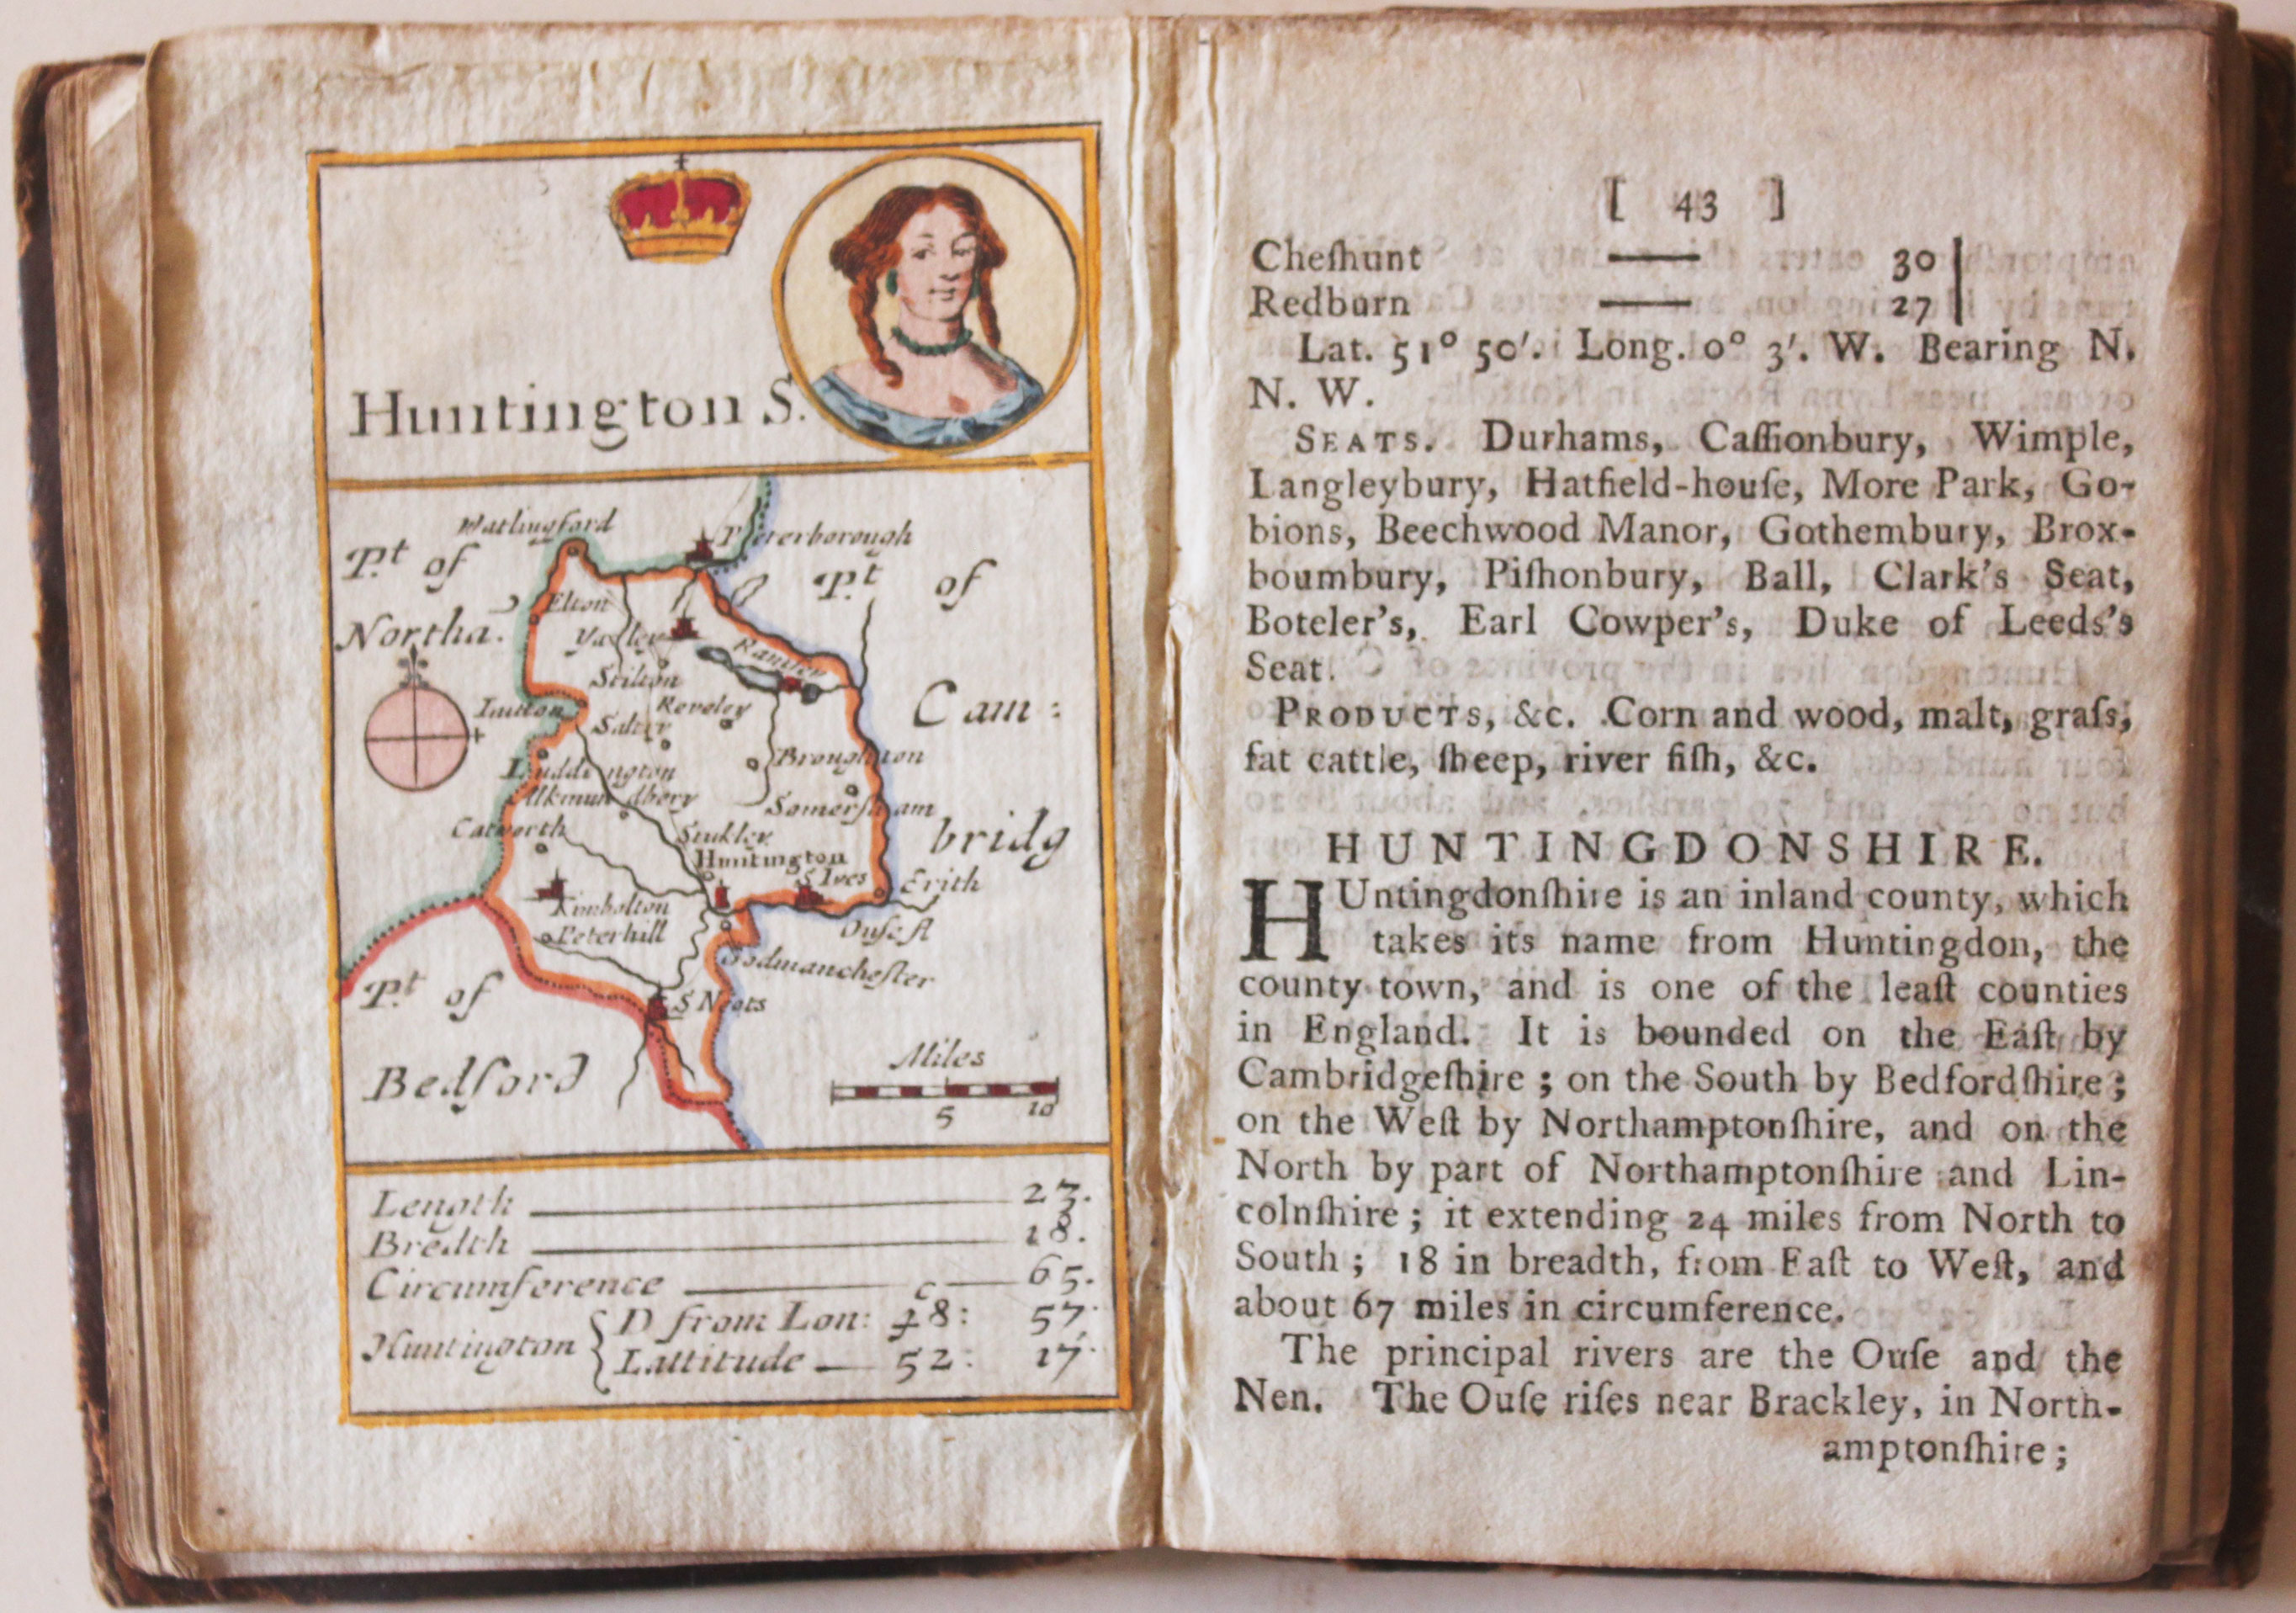 Huntington S.
Watlingford
Peterborough
P.t of
Northa.
P.t of
Cam:
bridg
Elton
Yaxley
Ramsey
Stilton
Reveley
Saltry
Luddington
Broughton
Alkmundbery
Somersham
Catworth
Stukley
Huntington
S Ives
Erith
Kimbolton
Peterhill
Ouse fl
Godmanchester
P.t of
Bedford
S Neots
Miles
5 10
Length 23.
Bredth 18.
Circumference c 65.
Huntington { D from Lon: 48: 57
Lattitude 52: 17
[ 43 ]
Cheſhunt —— 30
Redburn —— 27
Lat. 51° 50′. Long. 0° 3′. W. Bearing N.
N. W.
SEATS. Durhams, Caſſionbury, Wimple,
Langleybury, Hatfield-houſe, More Park, Go-
bions, Beechwood Manor, Gothembury, Brox-
boumbury, Piſhonbury, Ball, Clark's Seat,
Boteler's, Earl Cowper's, Duke of Leeds's
Seat.
PRODUCTS, &c. Corn and wood, malt, graſs,
fat cattle, ſheep, river fiſh, &c.
HUNTINGDONSHIRE.
HUntingdonſhire is an inland county, which
takes its name from Huntingdon, the
county town, and is one of the leaſt counties
in England. It is bounded on the Eaſt by
Cambridgeſhire; on the South by Bedfordſhire;
on the Weſt by Northamptonſhire, and on the
North by part of Northamptonſhire and Lin-
colnſhire; it extending 24 miles from North to
South; 18 in breadth, from Eaſt to Weſt, and
about 67 miles in circumference.
The principal rivers are the Ouſe and the
Nen. The Ouſe riſes near Brackley, in North-
amptonſhire;